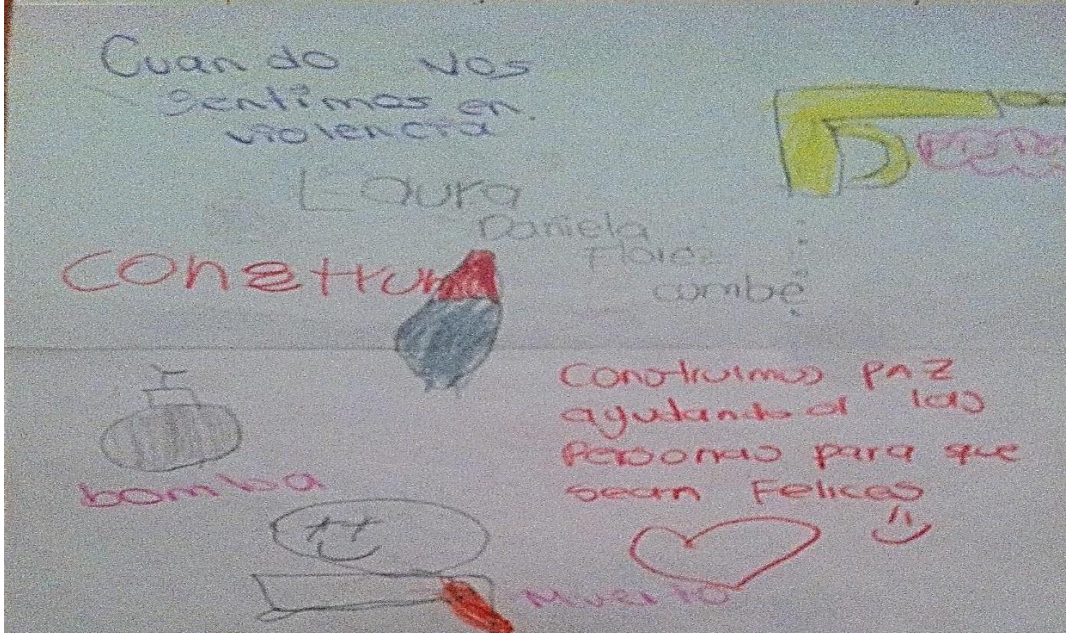 Cuando Nos
sentimos en
violencia
Laura
Daniela
Florez
cumbe
bomba
Construimos PAZ
ayudando al las
Personas para que
sean Felicas
Muerto